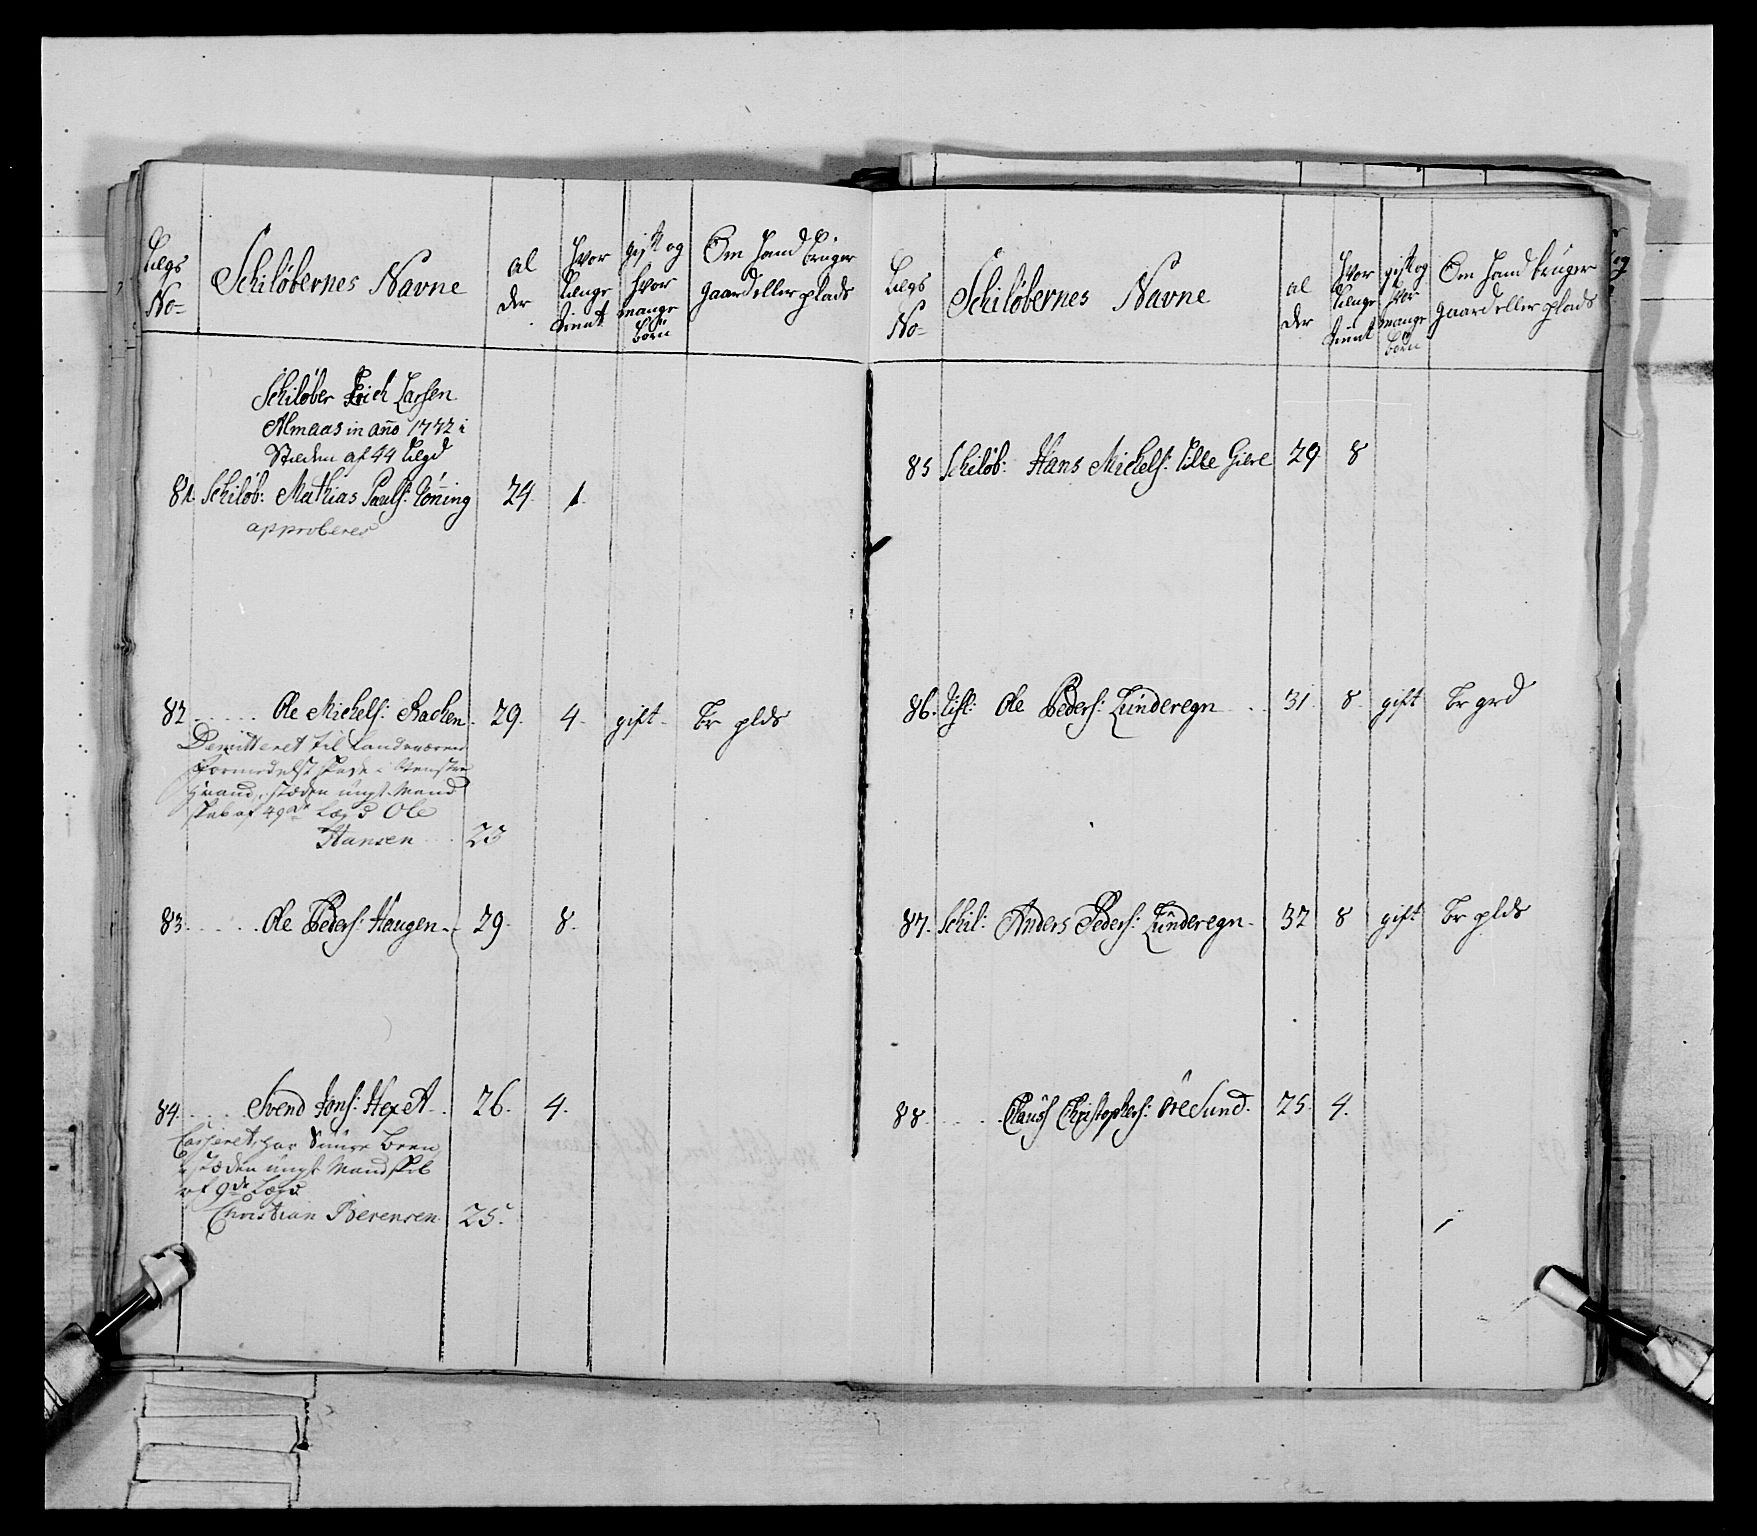 Lægs No=
Schilöbernes Navne
al der
hvor længe tient
gift og hvor mange börn
Om hand bruger gaard eller plads
Schilöber Erich Larsen
Almaas in año 1772 i
Stæden af 44 Lægd
81 Schilöb: Mathias Pauls: Löning 24. 1.
approberes
82 . . . . . Ole Michels: Bachen. 29. 4. gift. br plds
Demitteret til Landværnet
formedelst skade i Venstre
Haand, i stæden ungt Mand
skab af 49de Lægd Ole
Hansen . . 23
83. . . . . . Ole Peders: Haugen. . 29. 8.
84. . . . . Svend Jons: Hexet . . 26. 4.
Casseret, har Suure Been
i stæden ungt Mandskab
af 9de Lægd
Christian Berensen. 25.
Lægs No=
Schilöbernes Navne
al der
hvor længe tient
gift og hvor mange börn
Om hand bruger gaard eller plads
85 Schilöb: Hans Michels: Lille Giere 29 8
86. Ole Peders: Lunderegn . . 31. 8. gift br grd
87. Schil: Anders Peders: Lunderegn. 32 8 gift br plds
88. . . . . Clauss Christophers: Öresund. 25. 4.